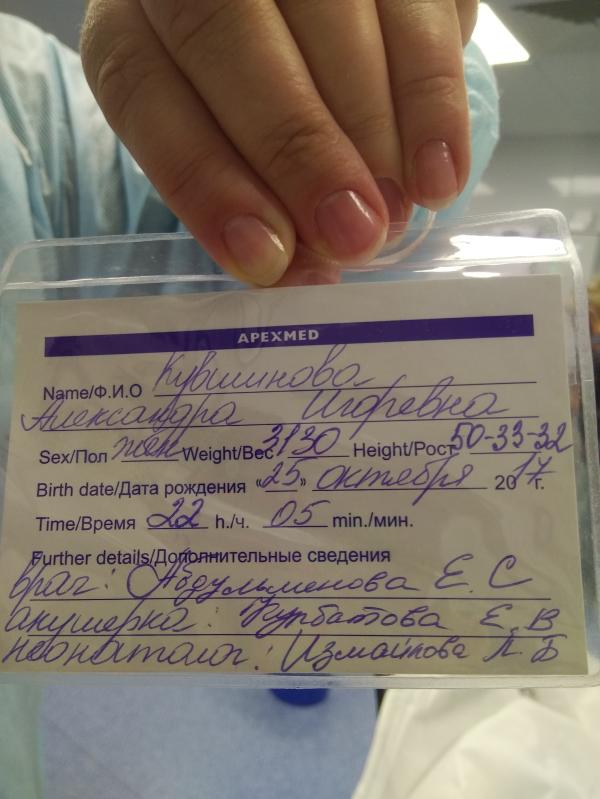 APEXMED
Name/Ф.И.О Кувшинова
Александра Игоревна
Sex/Пол жен Weight/Вес 3130 Height/Рост 50-33-32
Birth date/Дата рождения «25» октября 2017 г.
Time/Время 22 h./ч. 05 min./мин.
Further details/Дополнительные сведения
врач: Абдульменова Е. С
акушерка: Курбатова Е. В
неонатолог: Измайлова Л. Б